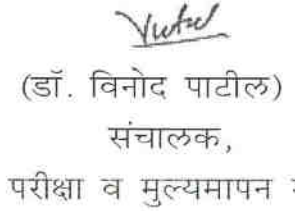 (डॉ. विनोद पाटील)
संचालक,
परीक्षा व मुल्यमापन